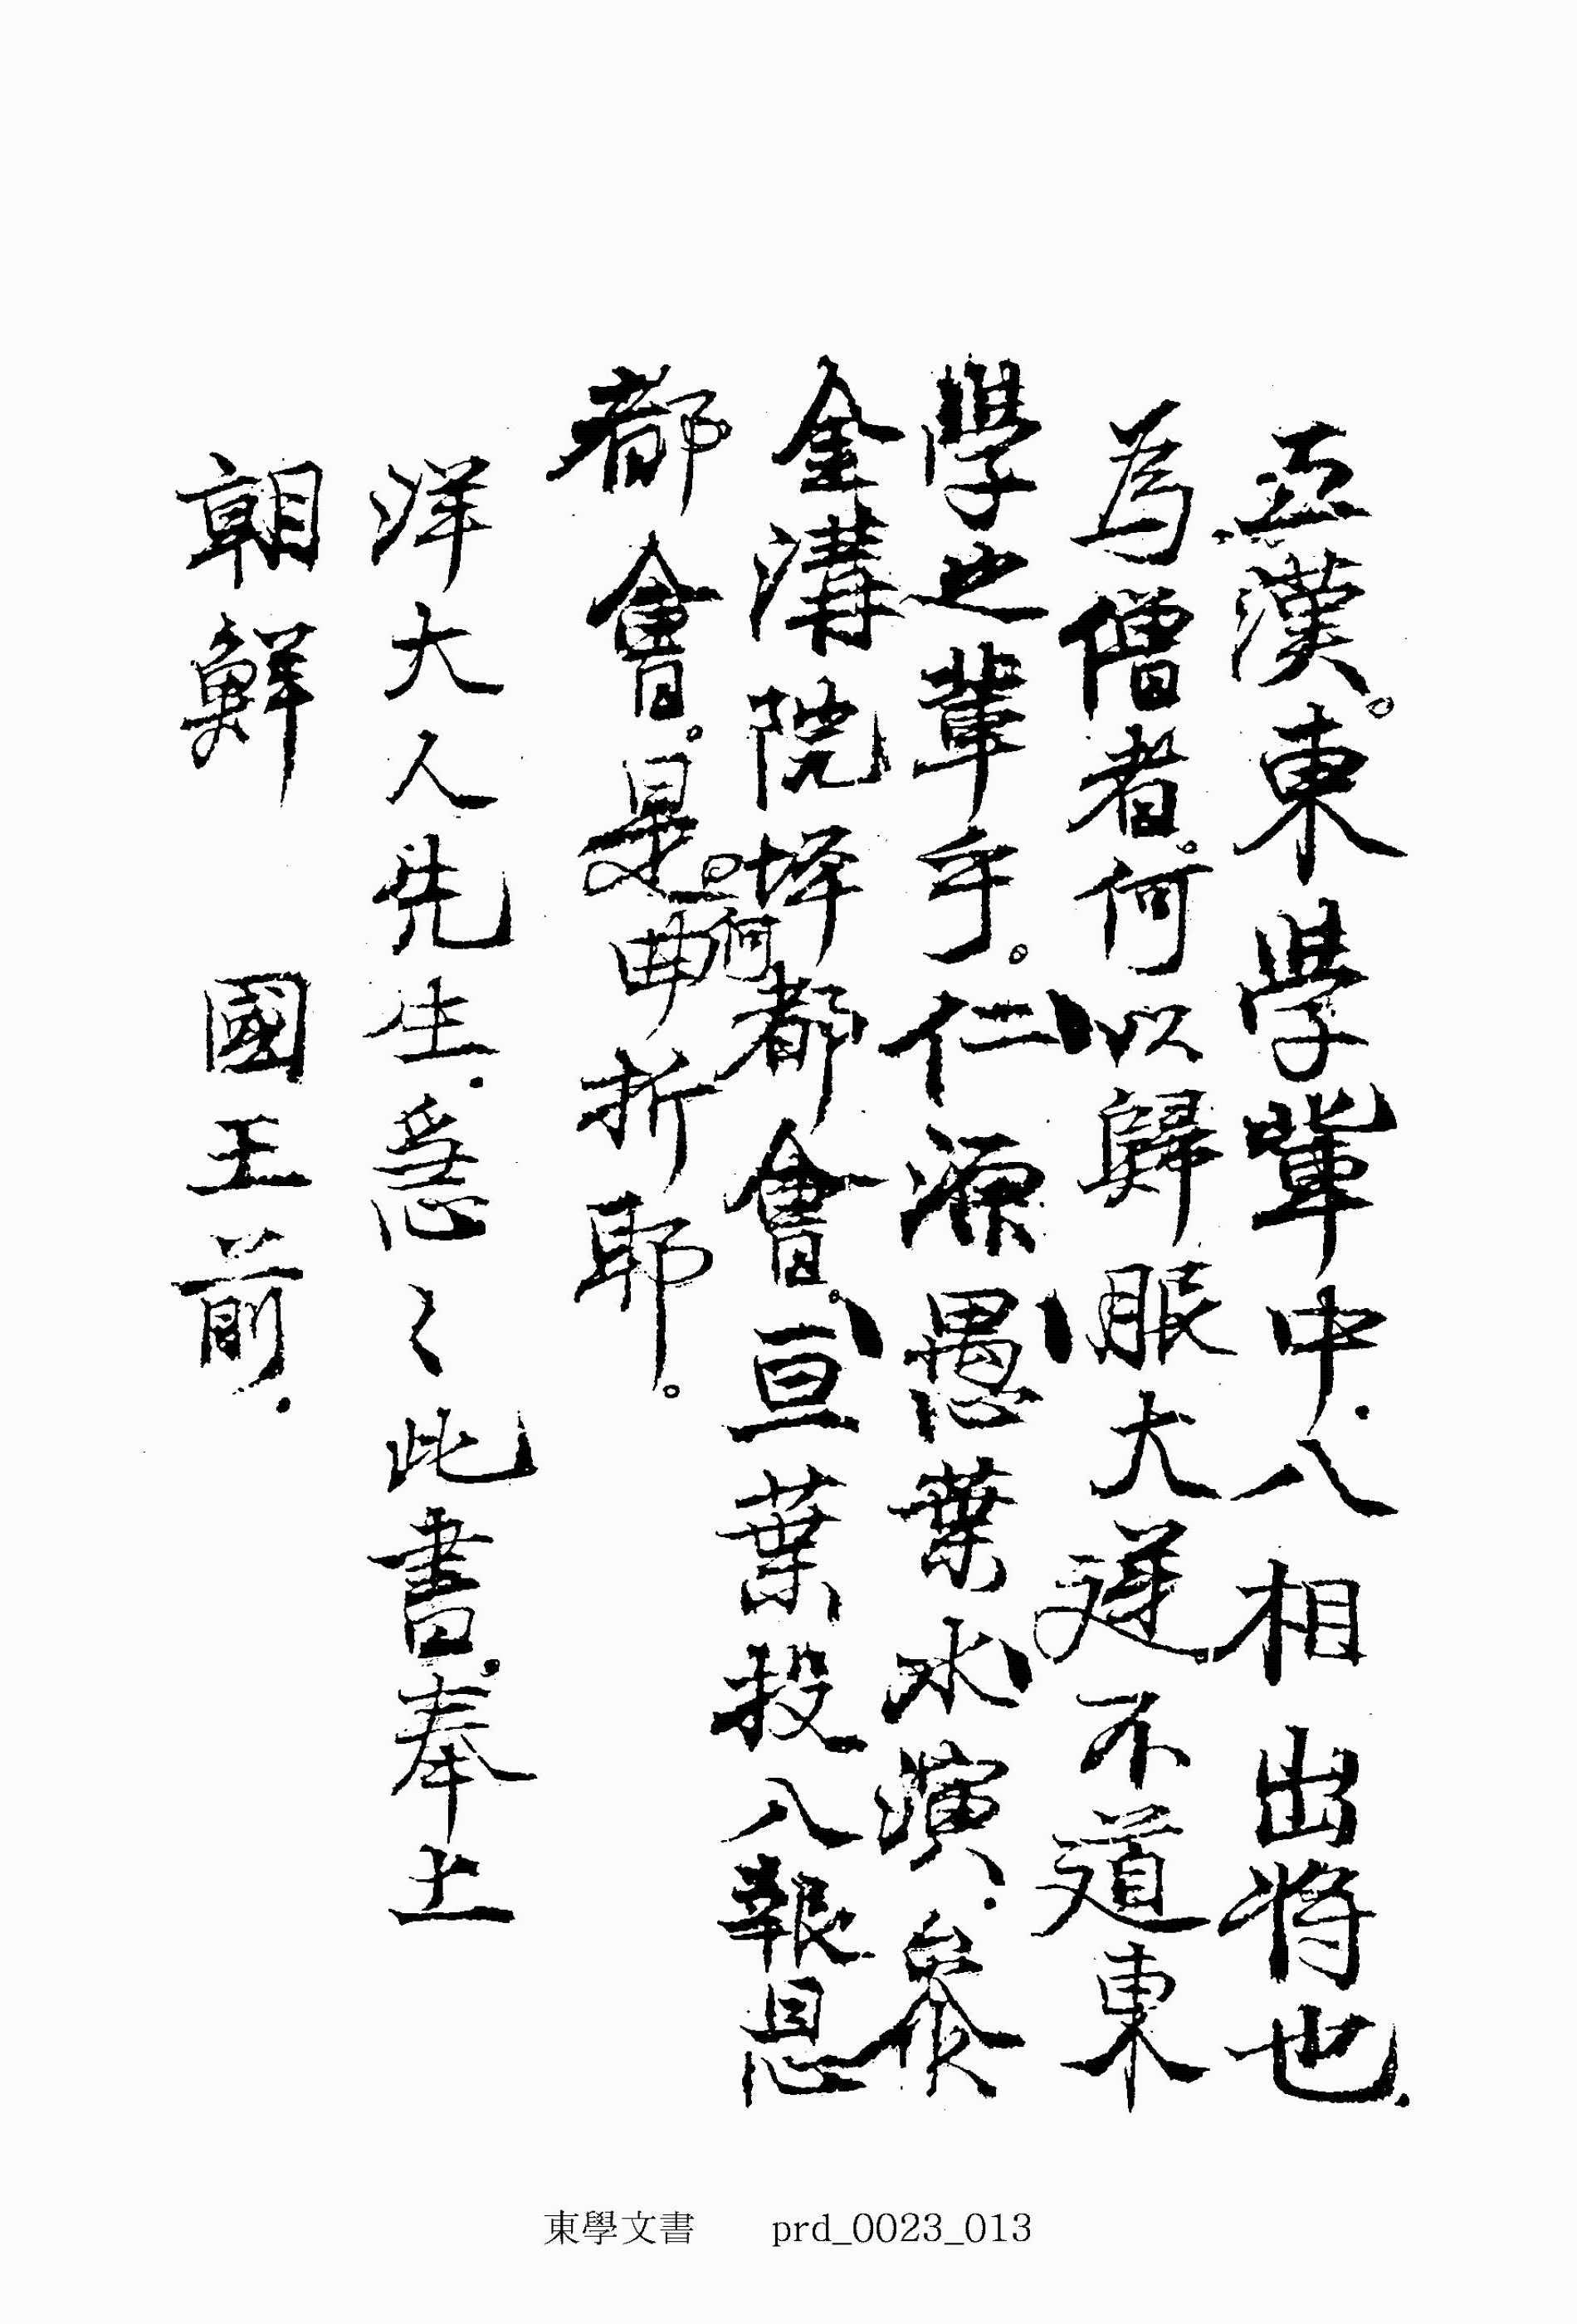 五漢東學輩中八相出將也
為僧者何以歸服大逆不道東
學之輩乎仁源愚葉水演參
金溝院坪都會亘葉投入報恩
都會是何曲折耶
洋大人先生急〻此書奉上
朝鮮 國王前
東學文書 prd_0023_013